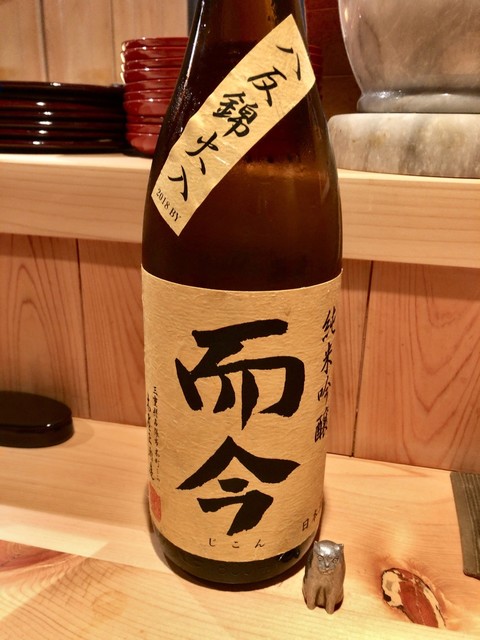 八反錦火入
2018 BY
純米吟醸
而今
じこん
日本
三重県名張市本町